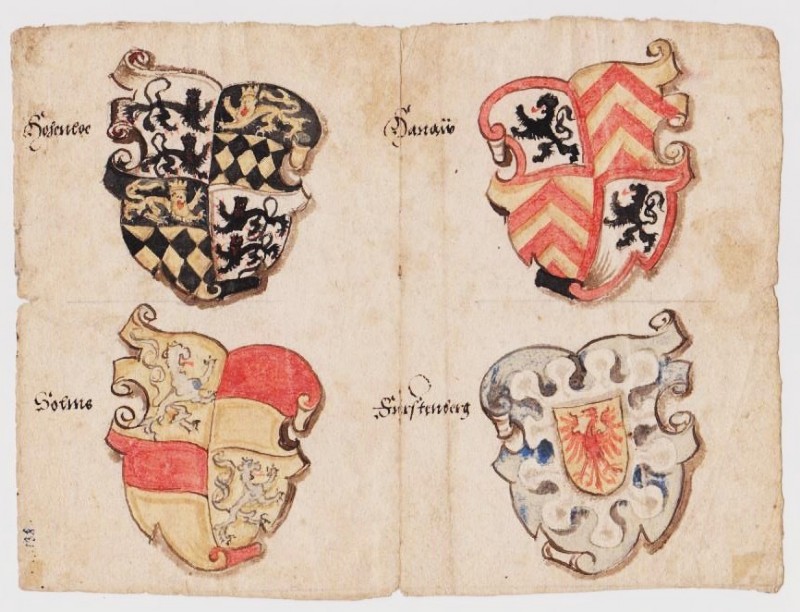 Hohenloe
Hanaw
Solms
Furstenberg
138